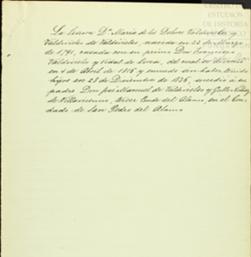 CENTRO DE
ESTUDIOS
DE HISTORIA
La Señora Dª María de los Dolores Valdivielso y
Valdivielso de Valdivielso, nacida en 22 de Marzo
de 1791, casada con su primo Don Francisco
Valdivielso y Vidal de Lorca, del cual se
en 4 de Abril de 1816 y enviudó sin haber tenido
hijos en 28 de Diciembre de 1836, sucedió a su
padre Don José Manuel de Valdivielso y Gallo Núñez
de Villavicencio, tercer Conde del Alamo, en el Con
dado de San Pedro del Alamo